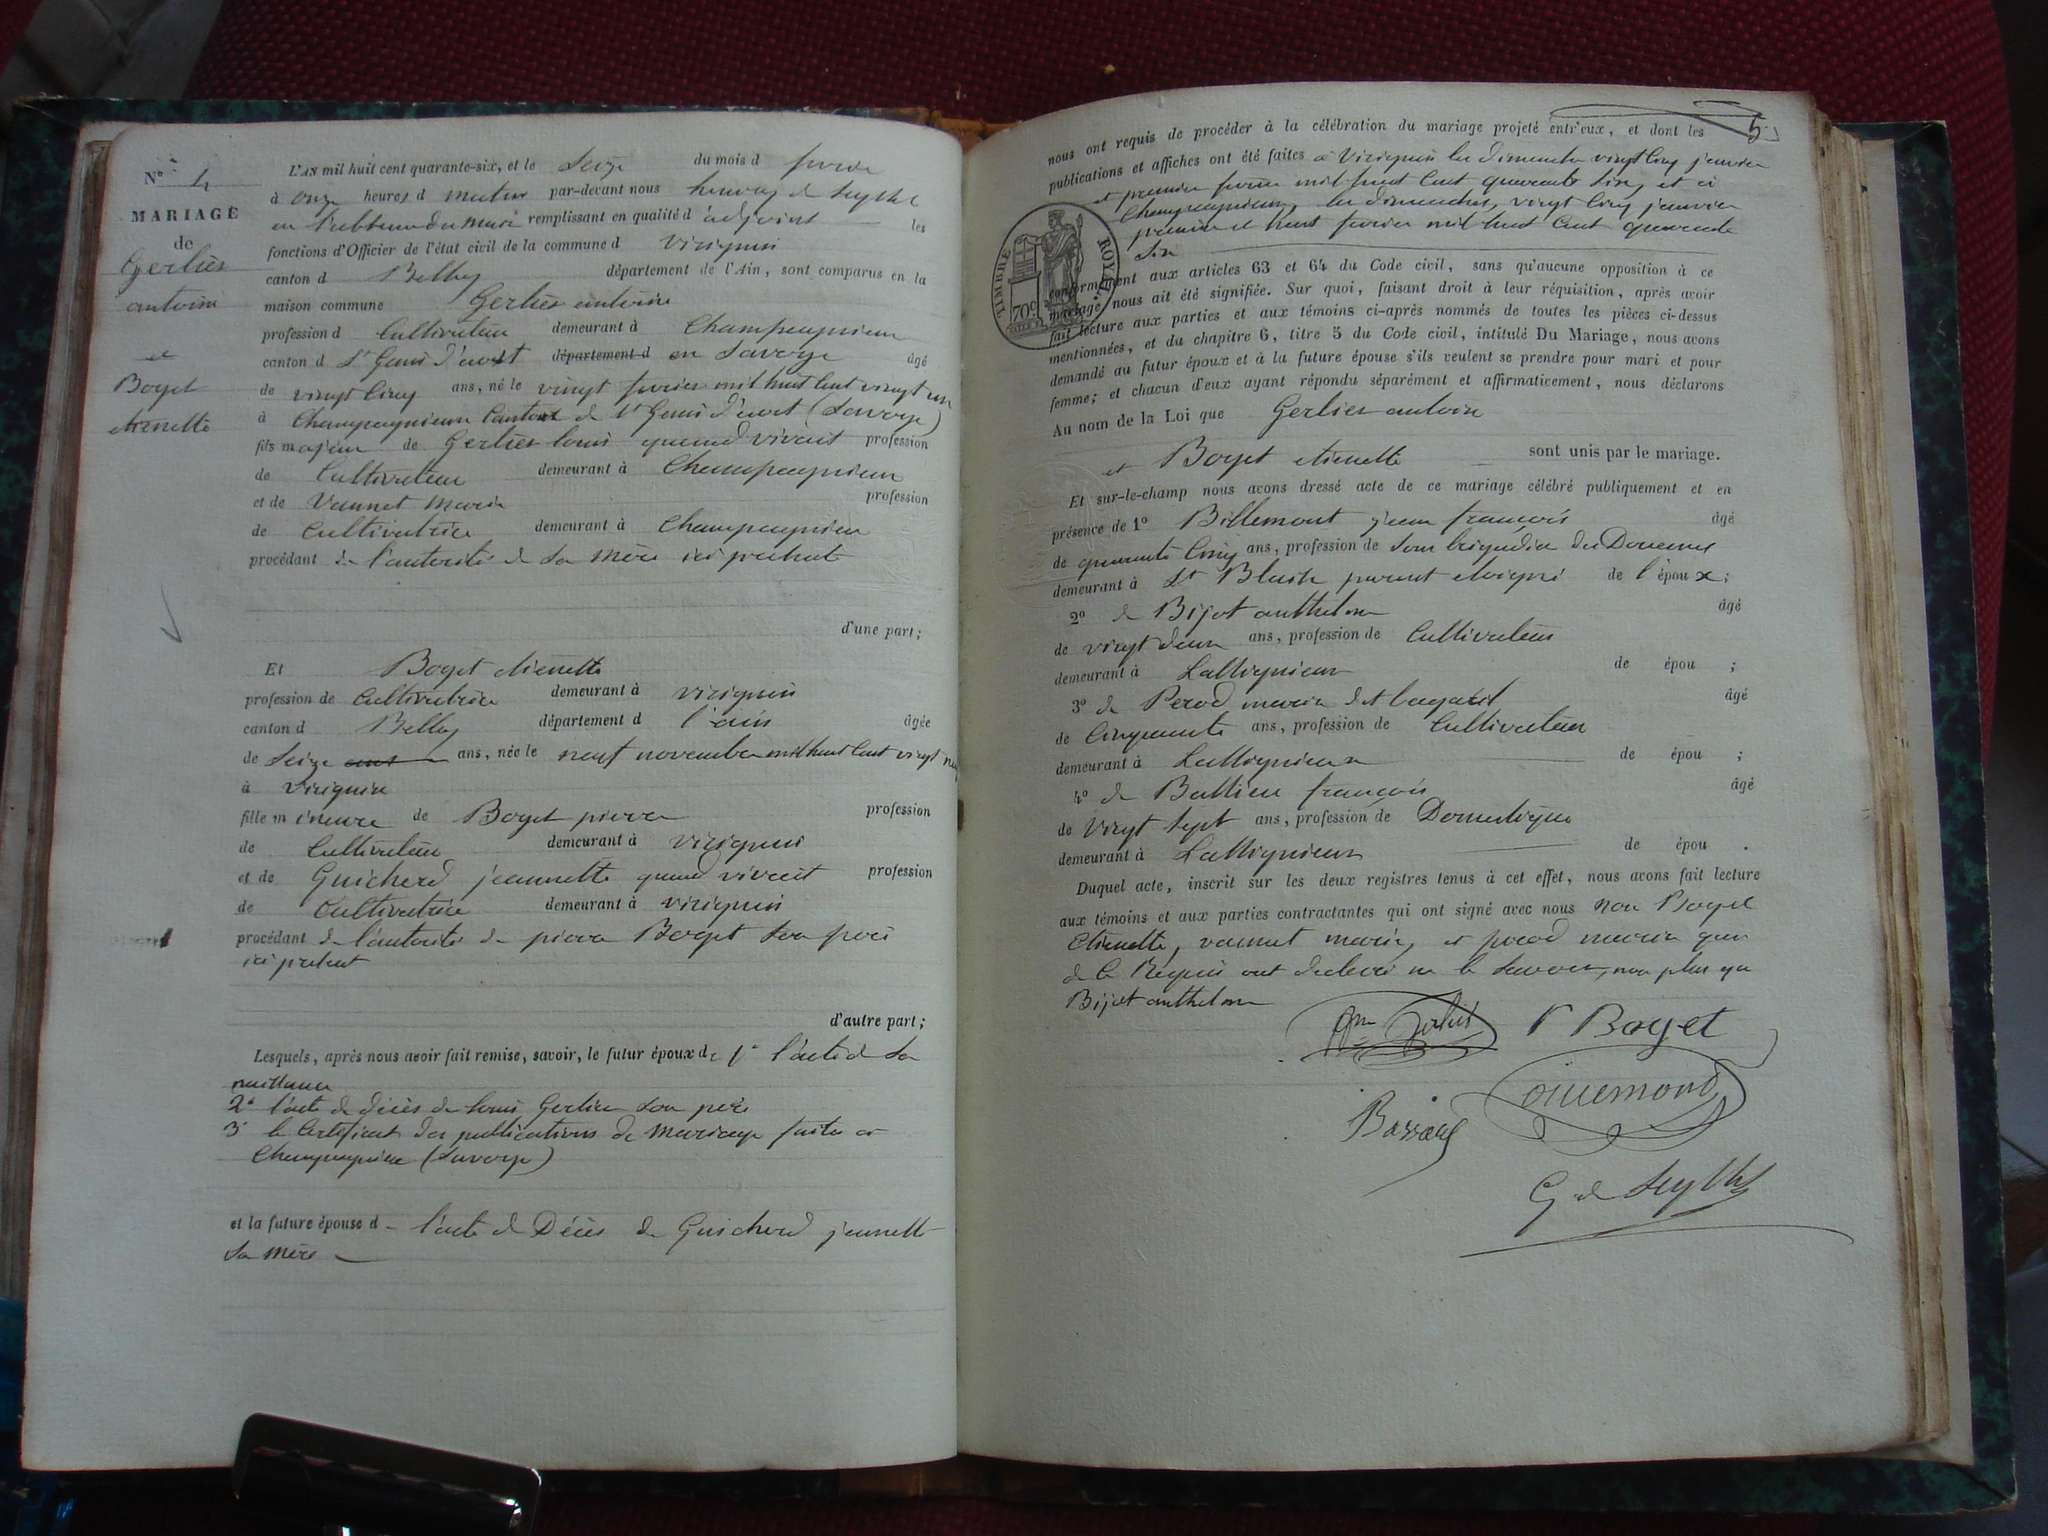 N° 4
MARIAGE
de
Gerlier
antoine
et
Boget
etienette
L'AN mil huit cent quarante-six, et le Seize du mois d fevrier
à onze heures d matin par-devant nous de Seyssel
en l'absence du Maire remplissant en qualité d'adjoint les
fonctions d'Officier de l'état civil de la commune d Virignin
canton d Belley département de l'Ain, sont comparus en la
maison commune Gerlier antoine
profession d Cultivateur demeurant à Champagnieux
canton d St Genis d'aost département d en Savoye âgé
de vingt cinq ans, né le vingt fevrier mil huit cent vingt un
à Champagnieux Canton de St Genis d'aost (Savoye)
fils majeur de Gerlier louis quand vivait profession
de Cultivateur demeurant à Champagnieux
et de Vannet Marie profession
de Cultivatrice demeurant à Champagnieux
procédant de l'autorité de sa mère ici présente
d'une part;
Et Boget etienette
profession de Cultivatrice demeurant à Virignin
canton d Belley département d l'ain âgée
de Seize ans ans, née le neuf novembre mil huit cent vingt neuf
à Virignin
fille mineure de Boget pierre profession
de Cultivateur demeurant à Virignin
et de Guicherd jeannette quand vivait profession
de Cultivatrice demeurant à Virignin
procédant de l'autorité de pierre Boget son père
ici présent
d'autre part;
Lesquels, après nous avoir fait remise, savoir, le futur époux de 1° l'acte de sa
naissance
2° l'acte de décès de louis Gerlier son père
3° le Certificat des publications de Mariage faites à
Champagnieux (Savoye)
et la future épouse d l'acte de Décès de Guicherd jeannette
sa mère
5
nous ont requis de procéder à la célébration du mariage projeté entr'eux, et dont les
publications et affiches ont été faites à Virignin les dimanches vingt cinq janvier
et premier fevrier mil huit cent quarante six, et à
Champagnieux, les dimanches, vingt cinq janvier
premier et huit fevrier mil huit cent quarante
six
TIMBRE ROYAL
70c
conformément aux articles 63 et 64 du Code civil, sans qu'aucune opposition à ce
mariage nous ait été signifiée. Sur quoi, faisant droit à leur réquisition, après avoir
fait lecture aux parties et aux témoins ci-après nommés de toutes les pièces ci-dessus
mentionnées, et du chapitre 6, titre 5 du Code civil, intitulé Du Mariage, nous avons
demandé au futur époux et à la future épouse s'ils veulent se prendre pour mari et pour
femme; et chacun d'eux ayant répondu séparément et affirmativement, nous déclarons
Au nom de la Loi que Gerlier antoine
et Boget etienette sont unis par le mariage.
Et sur-le-champ nous avons dressé acte de ce mariage célébré publiquement et en
présence de 1° Billemont jean françois âgé
de quarante cinq ans, profession de Sous brigadier des Douanes
demeurant à St Blaise parent eloigné de l'époux;
2° de Bijot anthelme âgé
de vingt deux ans, profession de Cultivateur
demeurant à Lassignieux de épou ;
3° de Perod marin dit âgé
de Cinquante ans, profession de Cultivateur
demeurant à Lassignieux de épou ;
4° de françois âgé
de vingt sept ans, profession de Domestique
demeurant à Lassignieux de épou .
Duquel acte, inscrit sur les deux registres tenus à cet effet, nous avons fait lecture
aux témoins et aux parties contractantes qui ont signé avec nous non Boget
Etienette, vannet marie, et perod marin qui
de ce Requis ont declaré ne le Savoir, non plus que
Bijot anthelme
P Boget
G de Seyssel